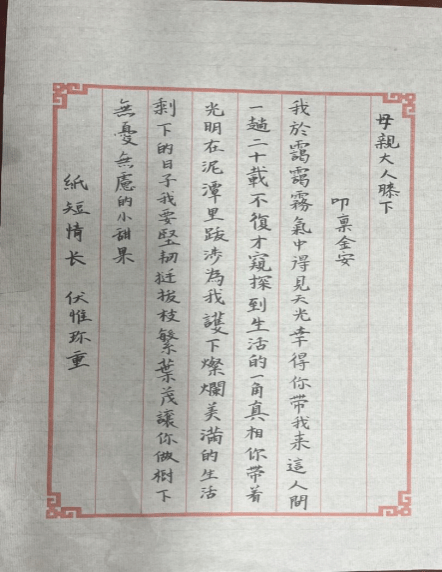 母親大人膝下
叩稟金安
我於靄靄霧氣中得見天光幸得你帶我来這人間
一趟二十載不復才窺探到生活的一角真相你帶着
光明在泥潭里跋涉為我護下燦爛美滿的生活
剩下的日子我要堅韌挺拔枝繁葉茂讓你做樹下
無憂無慮的小甜果
紙短情长 伏惟珎重